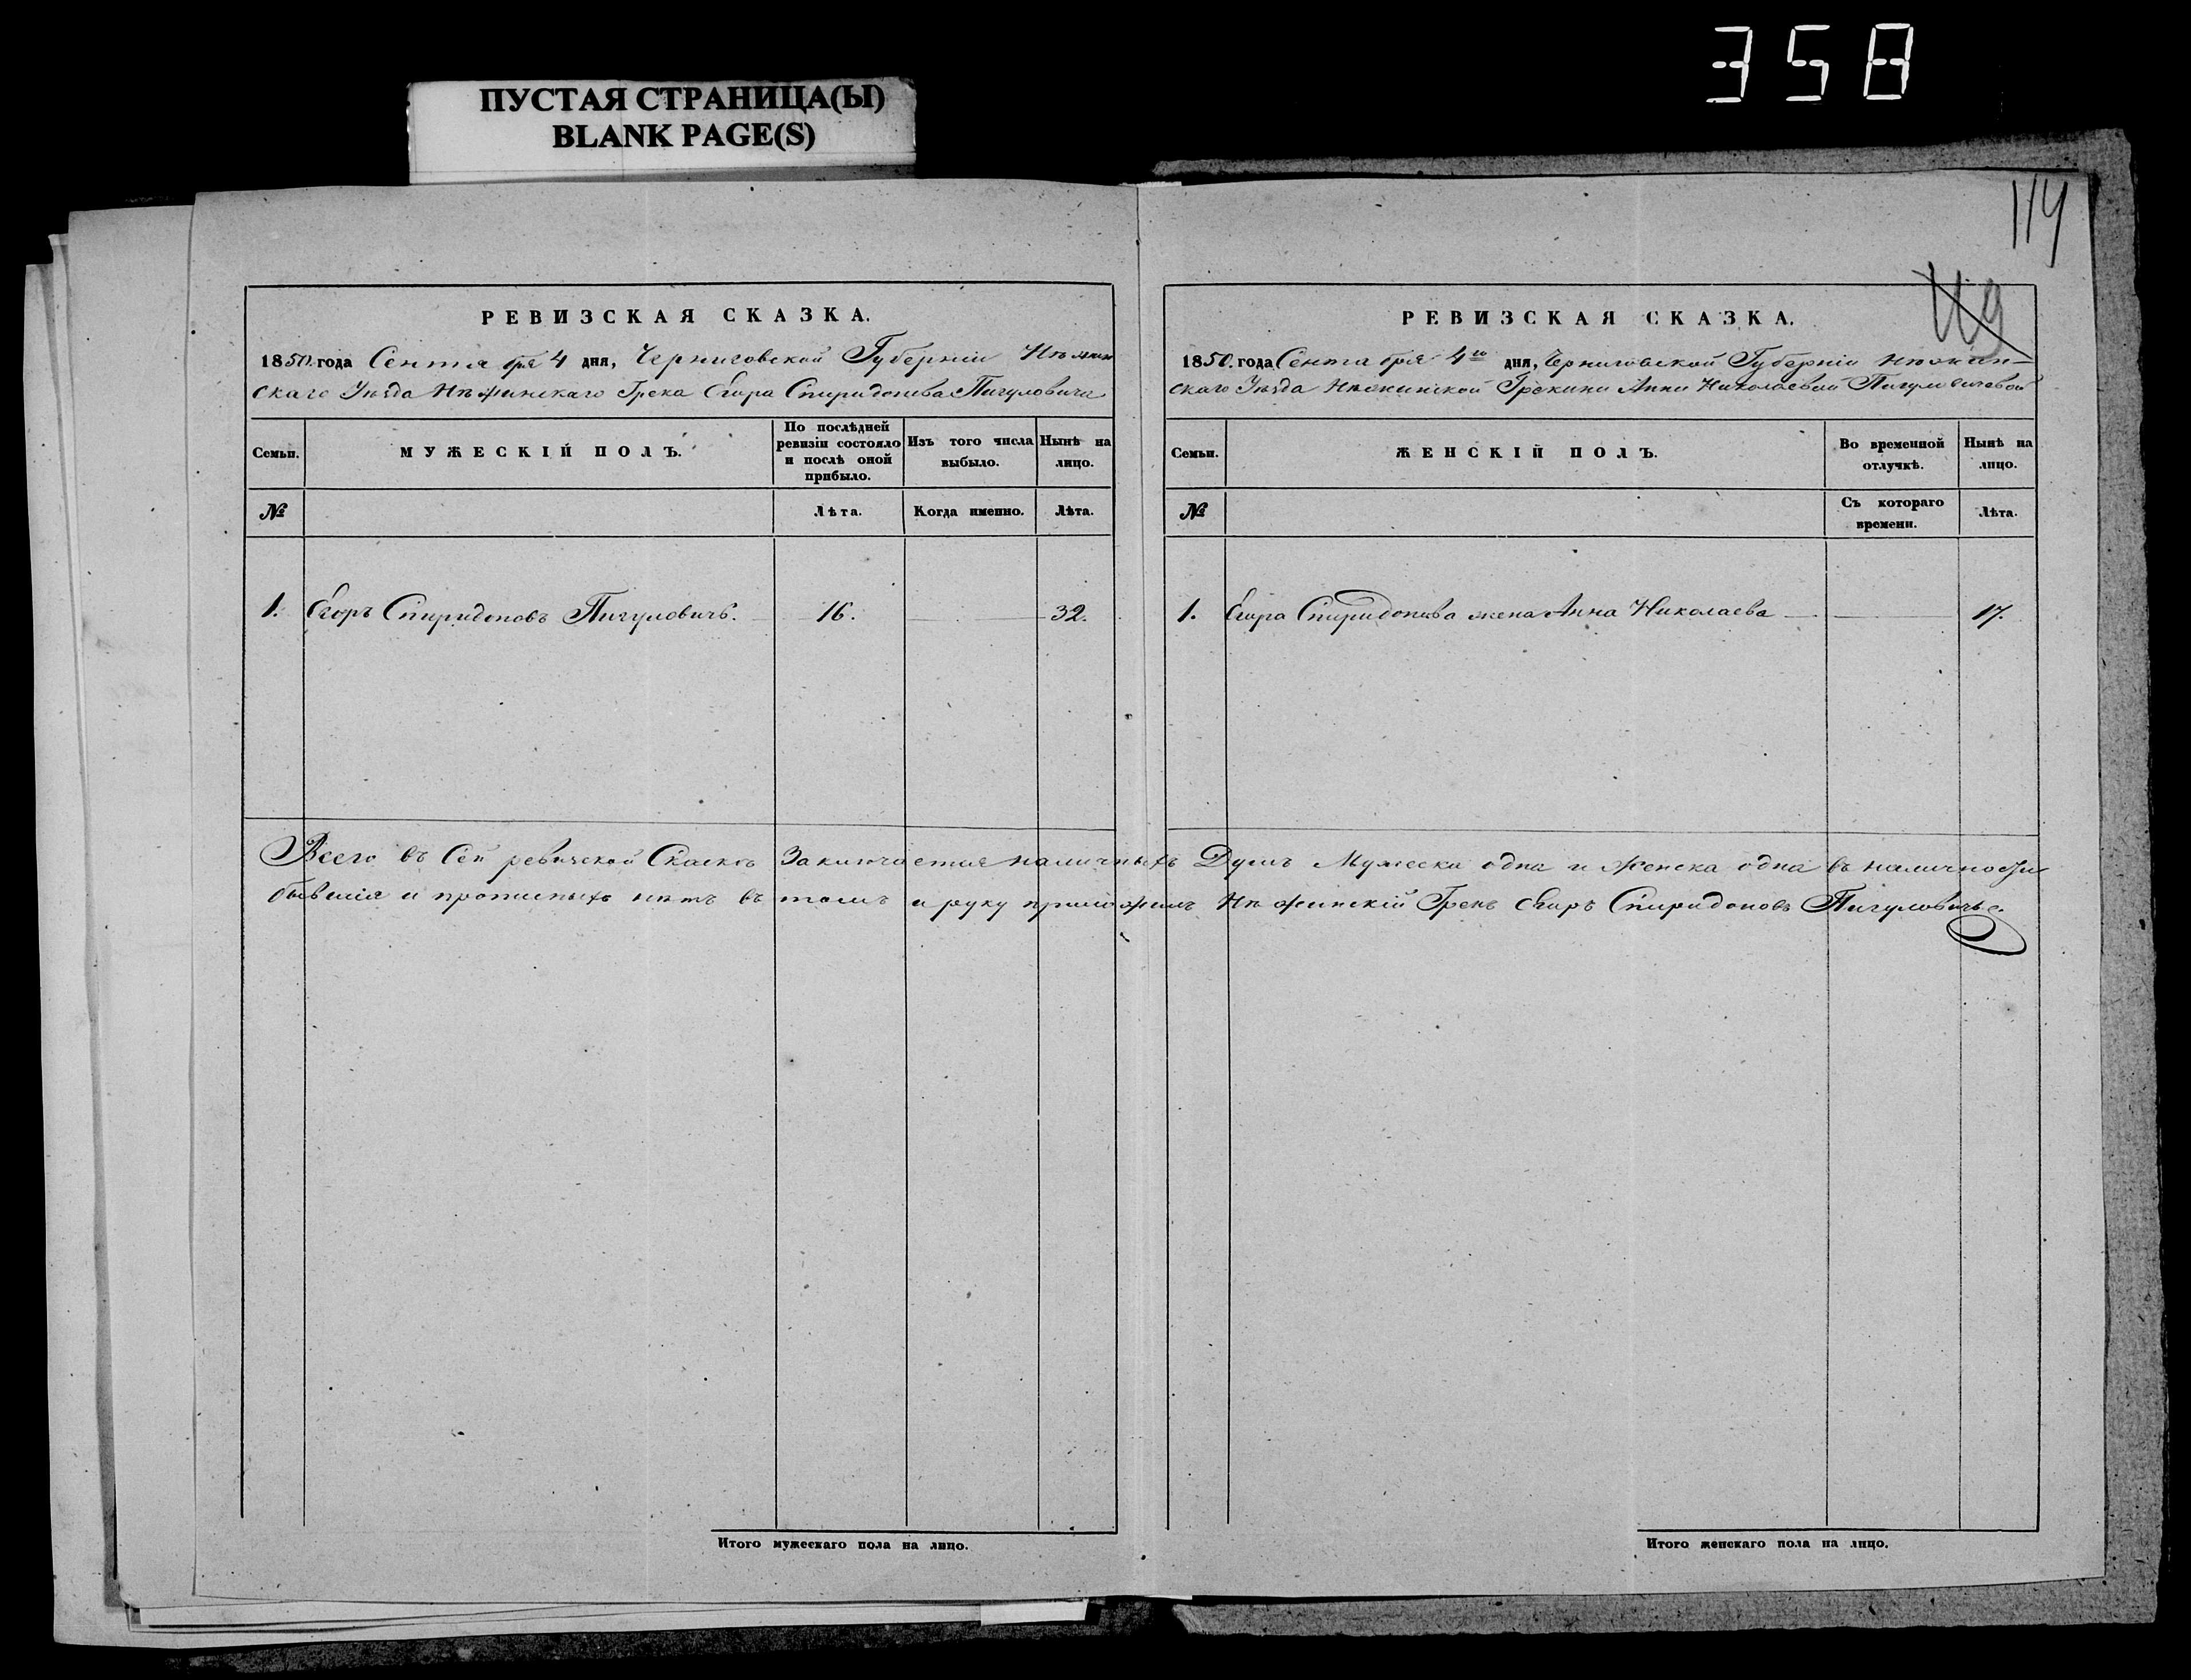 358
ПУСТАЯ СТРАНИЦА(Ы)
BLANK PAGE(S)
114
119
РЕВИЗСКАЯ СКАЗКА.
1850. года Сентября 4 дня, Черниговской Губерніи Нѣжин
скаго Уѣзда Нѣжинскаго Грека Егора Спиридонова Пигуловича
Семьи. МУЖЕСКІЙ ПОЛЪ. По послѣдней ревизіи состояло и послѣ оной прибыло. Изъ того числа выбыло. Нынѣ на лицо.
№ Лѣта. Когда именно. Лѣта.
1. Егоръ Спиридоновъ Пигуловичъ. 16. 32.
РЕВИЗСКАЯ СКАЗКА.
1850. года Сентября 4го дня, Черниговской Губерніи Нѣжин-
скаго Уѣзда Нѣжинской Грекини Анни Николаевой Пигуловичевой
Семьи. ЖЕНСКІЙ ПОЛЪ. Во временной отлучкѣ. Нынѣ на лицо.
№ Съ котораго времени. Лѣта.
1. Егора Спиридонова жена Анна Николаева 17.
Всего въ Сей ревизской Сказкѣ Заключается наличныхъ Душъ Мужеска одна и Женска одна въ наличности
бывшія и прописныхъ нѣтъ въ томъ и руку приложилъ Нѣжинскій Грекъ Егоръ Спиридоновъ Пигуловичъ.
Итого мужескаго пола на лицо.
Итого женскаго пола на лицо.